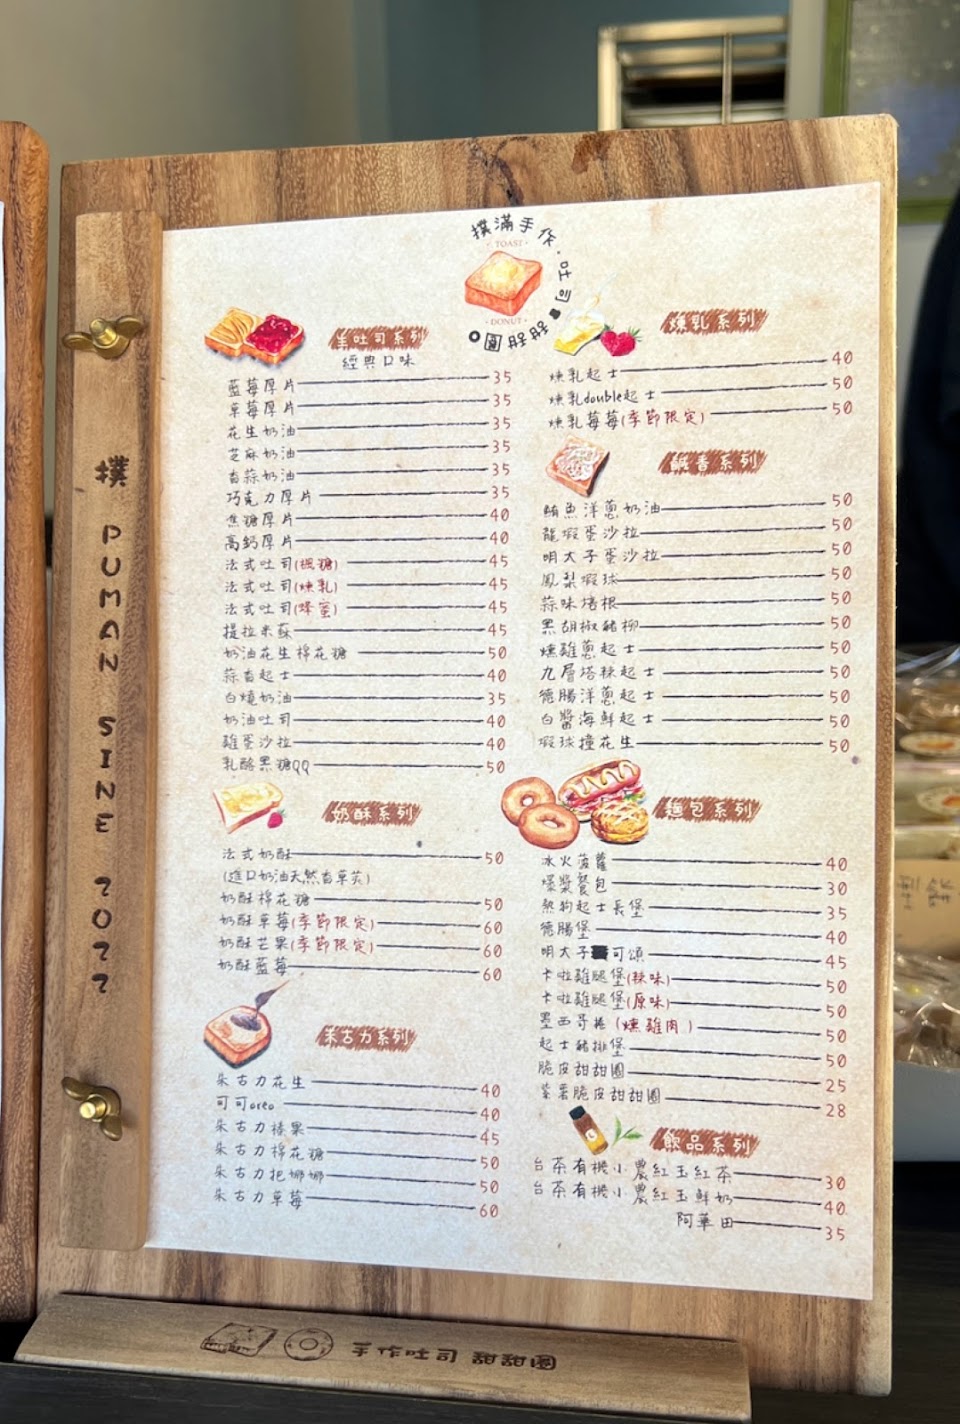 撲滿手作·吐司甜甜圈
TOAST
DONUT
撲 PUMAN SINE 2022
吐司系列
經典口味
藍莓厚片 35
草莓厚片 35
花生奶油 35
芝麻奶油 35
香蒜奶油 35
巧克力厚片 35
焦糖厚片 40
高鈣厚片 40
法式吐司(楓糖) 45
法式吐司(煉乳) 45
法式吐司(蜂蜜) 45
提拉米蘇 45
奶油花生棉花糖 50
蒜香起士 40
白燒奶油 35
奶油吐司 40
雞蛋沙拉 40
乳酪黑糖QQ 50
奶酥系列
法式奶酥 50
(進口奶油天然香草莢)
奶酥棉花糖 50
奶酥草莓(季節限定) 60
奶酥芒果(季節限定) 60
奶酥藍莓 60
朱古力系列
朱古力花生 40
可可oreo 40
朱古力榛果 45
朱古力棉花糖 50
朱古力把娜娜 50
朱古力草莓 60
煉乳系列
煉乳起士 40
煉乳double起士 50
煉乳莓莓(季節限定) 50
鹹香系列
鮪魚洋蔥奶油 50
龍蝦蛋沙拉 50
明太子蛋沙拉 50
鳳梨蝦球 50
蒜味培根 50
黑胡椒豬柳 50
燻雞蔥起士 50
九層塔辣起士 50
德腸洋蔥起士 50
白醬海鮮起士 50
蝦球撞花生 50
麵包系列
冰火菠蘿 40
爆漿餐包 30
熱狗起士長堡 35
德腸堡 40
明太子可頌 45
卡啦雞腿堡(辣味) 50
卡啦雞腿堡(原味) 50
墨西哥捲(燻雞肉) 50
起士豬排堡 50
脆皮甜甜圈 25
紫薯脆皮甜甜圈 28
飲品系列
台茶有機小農紅玉紅茶 30
台茶有機小農紅玉鮮奶 40
阿華田 35
手作吐司 甜甜圈